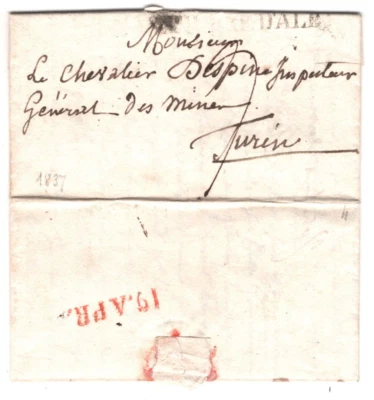 DALE
Monsieur
Le Chevalier Despine Inspecteur
Général des mines
Turin
1837
19.APR.